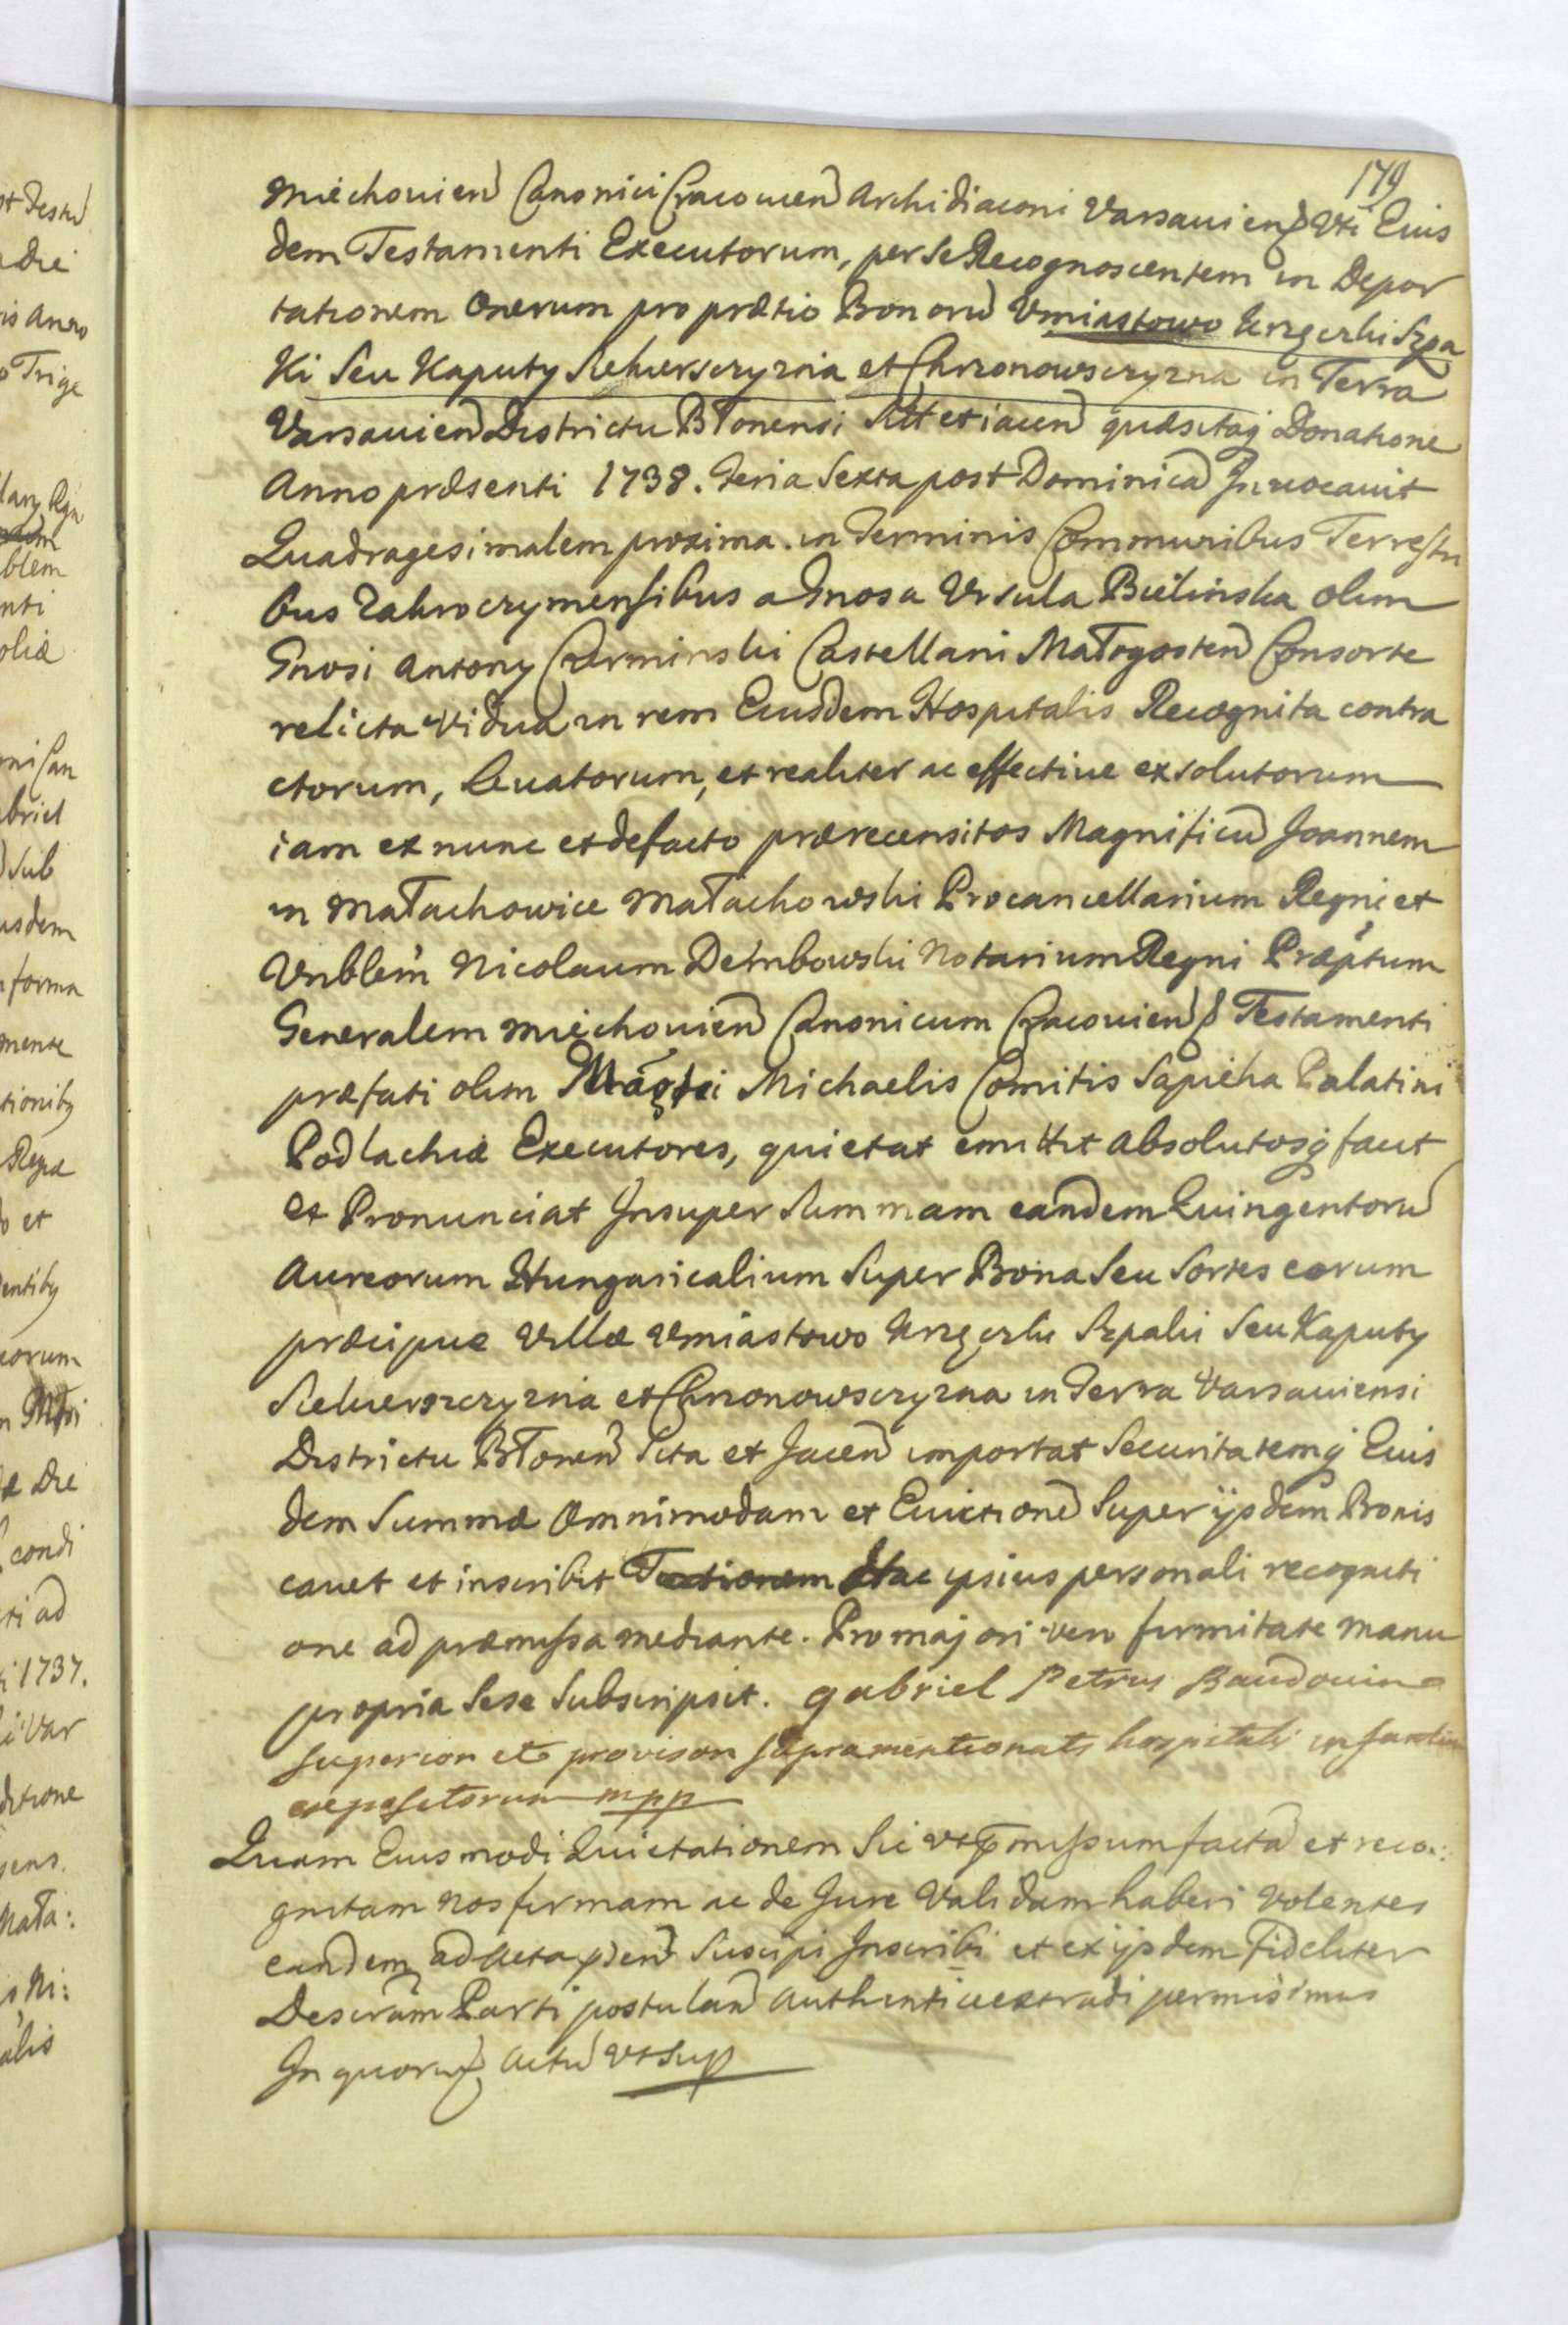 179
Miechovien Canonici Cracovien Archidiaconi Varsavien Uti Eius
dem Testamenti Executorum, per Se Recognoscentem in Depor
tationem Onerum pro prætio Bonorū Umiastowo Szpa
Ki Seu Kaputy et Chrzonowszczyzna in Terra
Varsavien Districtu Błonensi Sitt et iacen quæsitaq Donatione
Anno præsenti 1738. Feria Sexta post Dominicā Invocavit
Quadragesimalem proxima. in Terminis Communibus Terrestri
bus Zakroczymensibus a Gnosa Ursula Bielinska olim
Gnosi Antony Czerminski Castellani Małogosten Consorte
relicta Vidua in rem Eiusdem Hospitalis Recognita contra
ctorum, levatorum, et realiter ac effective exsolutorum
iam ex nunc et de facto prærecensitos Magnificū Joannem
in Małachowice Małachowski Procancellarium Regni et
Vnblem Nicolaum Dembowski Notarium Regni Præptum
Generalem Miechovien Canonicum Cracovien Testamenti
præfati olim Michaelis Comitis Sapieha Palatini
Podlachiæ Executores, quietat emittit absolutosq facit
et Pronunciat Insuper Summam eandem Quingentorū
Aureorum Hungaricalium Super Bona Seu Sortes earum
præcipue Villæ Umiastowo Szpaki Seu Kaputy
et Chrzonowszczyzna in Terra Varsaviensi
Districtu Błonen Sita et Jacen importat Securitatemq Eius
dem Summæ Omnimodam et Evictionē Super ijsdem Bonis
cavet et inscribit Hac ipsius personali recogniti
one ad præmissa mediante. Pro majori vero firmitate manu
propria Sese Subscripsit. gabriel Petrus Baudouin
superior et provisor supramentionati hospitalis infantiū
expositorum mpp
Quam Eiusmodi Quietationem Sic ut pmissum factā et reco:
gnitam Nos firmam ac de Jure Validam haberi Volentes
eandem ad Acta pden Suscipi Inscribi et ex ijsdem Fideliter
Descram Parti postulan Authentice extradi permisimus
In quorū Actū Ut Sup